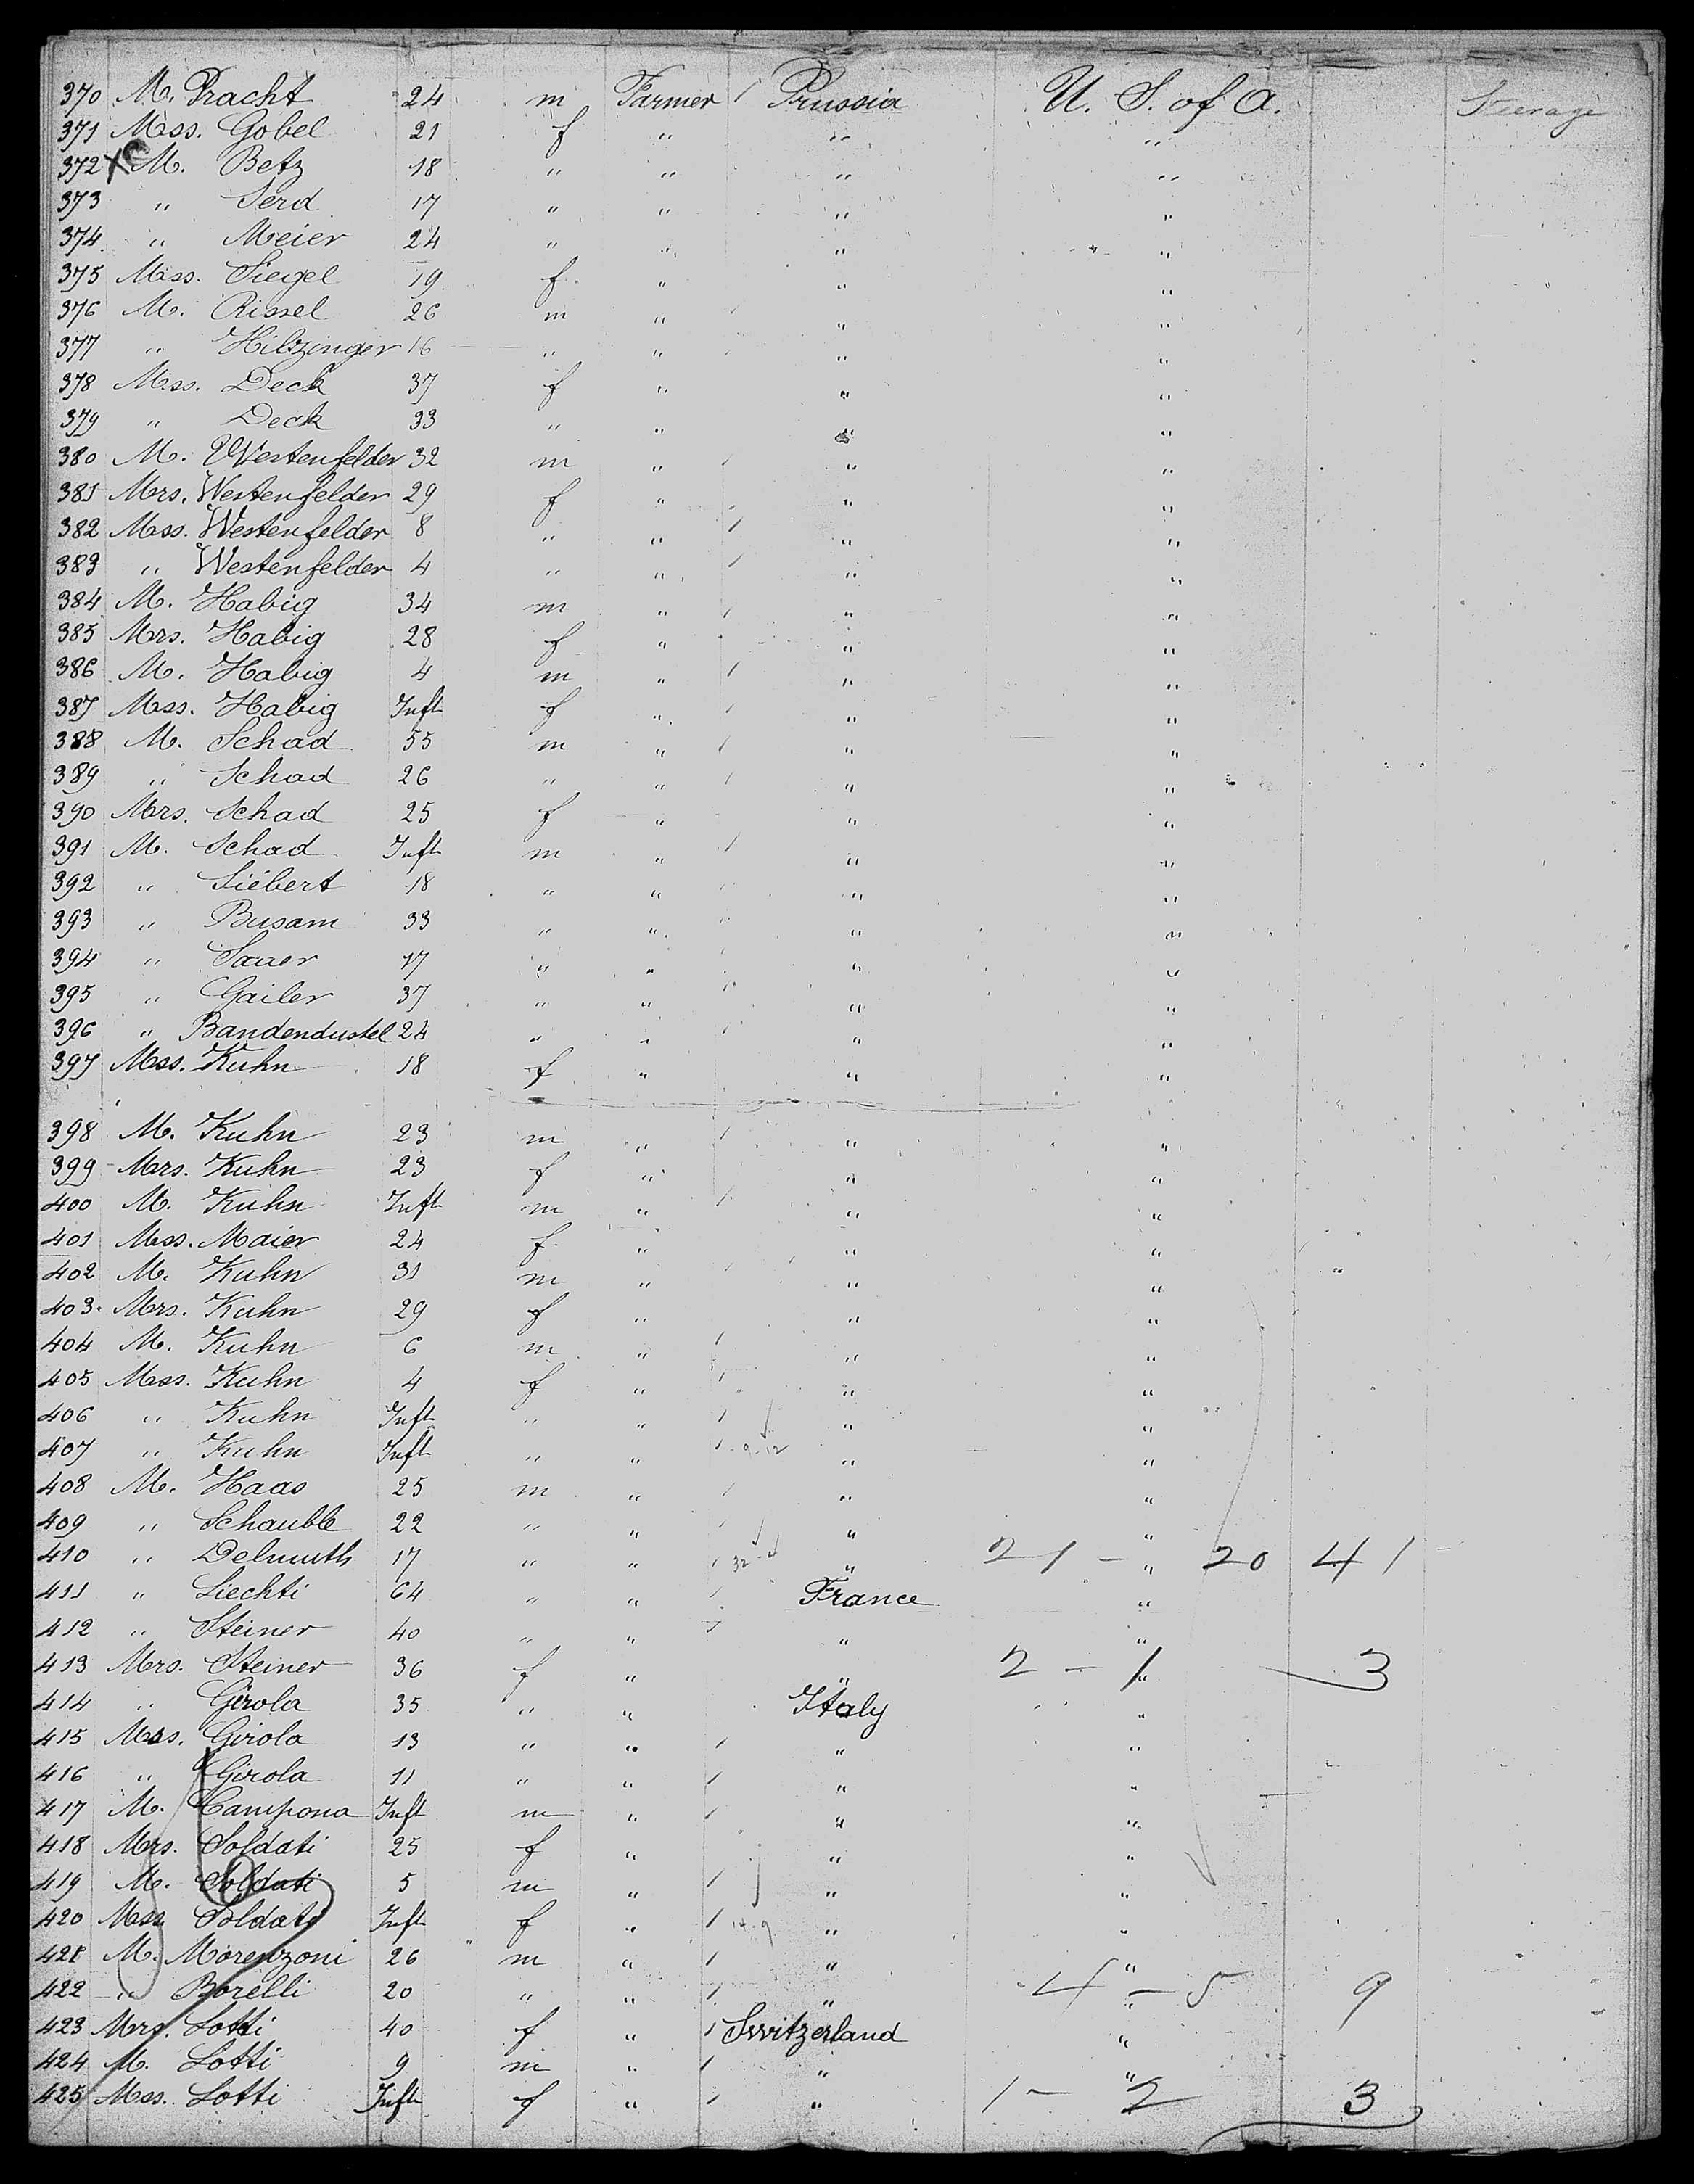 370 M. Pracht 24 m Farmer Prussia U. S. of A. Steerage
371 Mss. Gobel 21 f " " "
372 M. Betz 18 " " " "
373 " Serd 17 " " " "
374 " Meier 24 " " " "
375 Mss. Siegel 19 f " " "
376 M. Rissel 26 m " " "
377 " Hilzinger 16 " " " "
378 Mss. Deck 37 f " " "
379 " Deck 33 " " " "
380 M. Westenfelder 32 m " " "
381 Mrs. Westenfelder 29 f " " "
382 Mss. Westenfelder 8 " " " "
383 " Westenfelder 4 " " " "
384 M. Habig 34 m " " "
385 Mrs. Habig 28 f " " "
386 M. Habig 4 m " " "
387 Mss. Habig Inft f " " "
388 M. Schad 55 m " " "
389 " Schad 26 " " " "
390 Mrs. Schad 25 f " " "
391 M. Schad Inft m " " "
392 " Siebert 18 " " " "
393 " Busam 33 " " " "
394 " Sauer 17 " " " "
395 " Gailer 37 " " " "
396 " Bandendustel 24 " " " "
397 Mss. Kuhn 18 f " " "
398 M. Kuhn 23 m " " "
399 Mrs. Kuhn 23 f " " "
400 M. Kuhn Inft m " " "
401 Mss. Maier 24 f " " "
402 M. Kuhn 31 m " " "
403 Mrs. Kuhn 29 f " " "
404 M. Kuhn 6 m " " "
405 Mss. Kuhn 4 f " " "
406 " Kuhn Inft " " " "
407 " Kuhn Inft " " 9-12 " "
408 M. Haas 25 m " " "
409 " Schauble 22 " " " "
410 " Delmuth 17 " " " 21 - " 20 41
411 " Liechti 64 " " France "
412 " Steiner 40 " " " "
413 Mrs. Steiner 36 f " " 2 - 1 " 3
414 " Girola 35 " " Italy "
415 Mss. Girola 13 " " " "
416 " Girola 11 " " " "
417 M. Campona Inft m " " "
418 Mrs. Soldati 25 f " " "
419 M. Soldati 5 m " " "
420 Mss Soldati Inft f " 14-9 " "
421 M. Morenzoni 26 m " " "
422 " Borelli 20 " " " 4 - 5 " 9
423 Mrs. Lotti 40 f " Switzerland "
424 M. Lotti 9 m " " "
425 Mss. Lotti Inft f " " 1 - 2 3